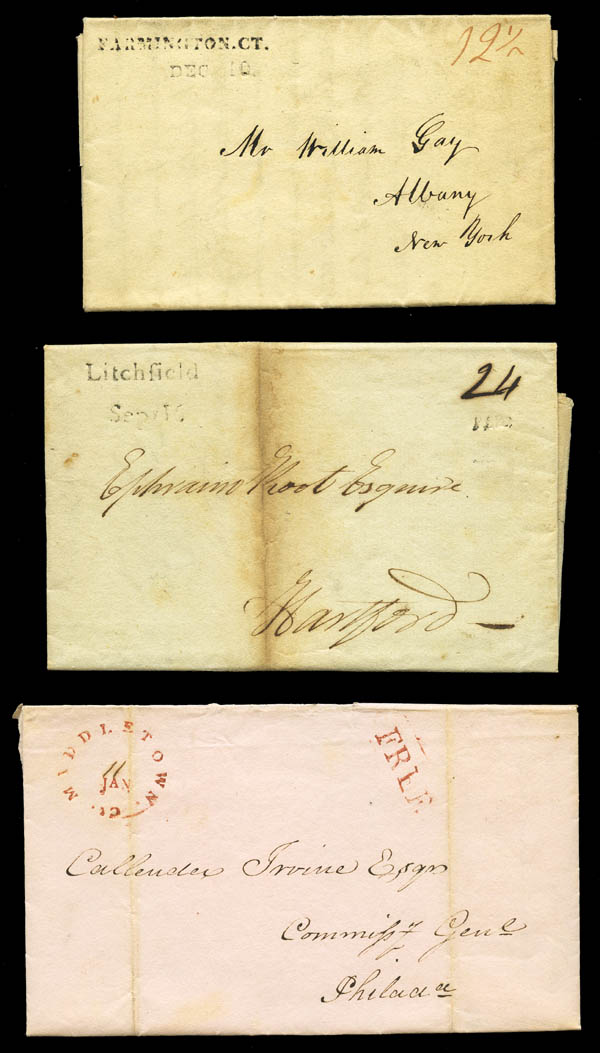 FARMINGTON.CT.
DEC 10.
12½
Mr William Gay
Albany
New York
Litchfield
Sep 16
24
Ephraim Root Esquire
Hartford
MIDDLETOWN. Ct.
11
JAN
FREE.
Callender Irvine Esqr
Commissy Genl
Philada